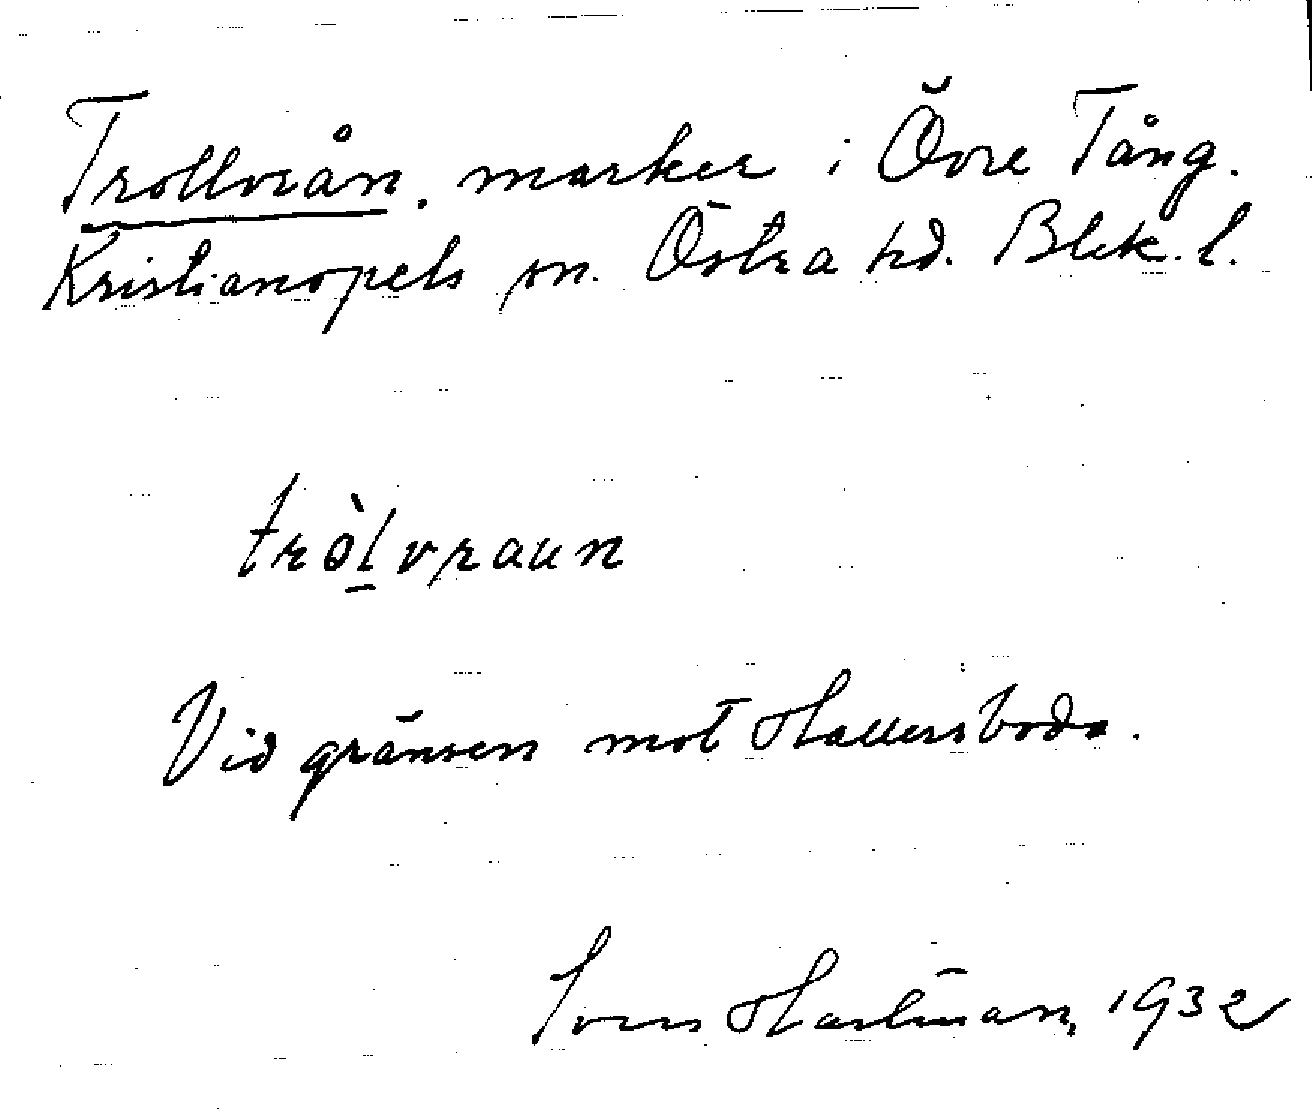 Trollvrån. marker i Övre Tång.
Kristianopels sn. Östra hd. Blek. l.
tròl̲vraun
Vid gränsen mot Hallersboda.
Sven Hartman, 1932